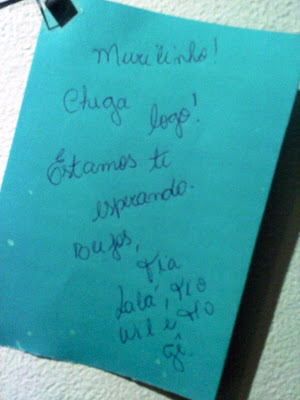 Murilinho!
Chega
logo!
Estamos te
esperando.
Beijos,
Tia
Lalá, Tio
Wil e Tio
Gê.